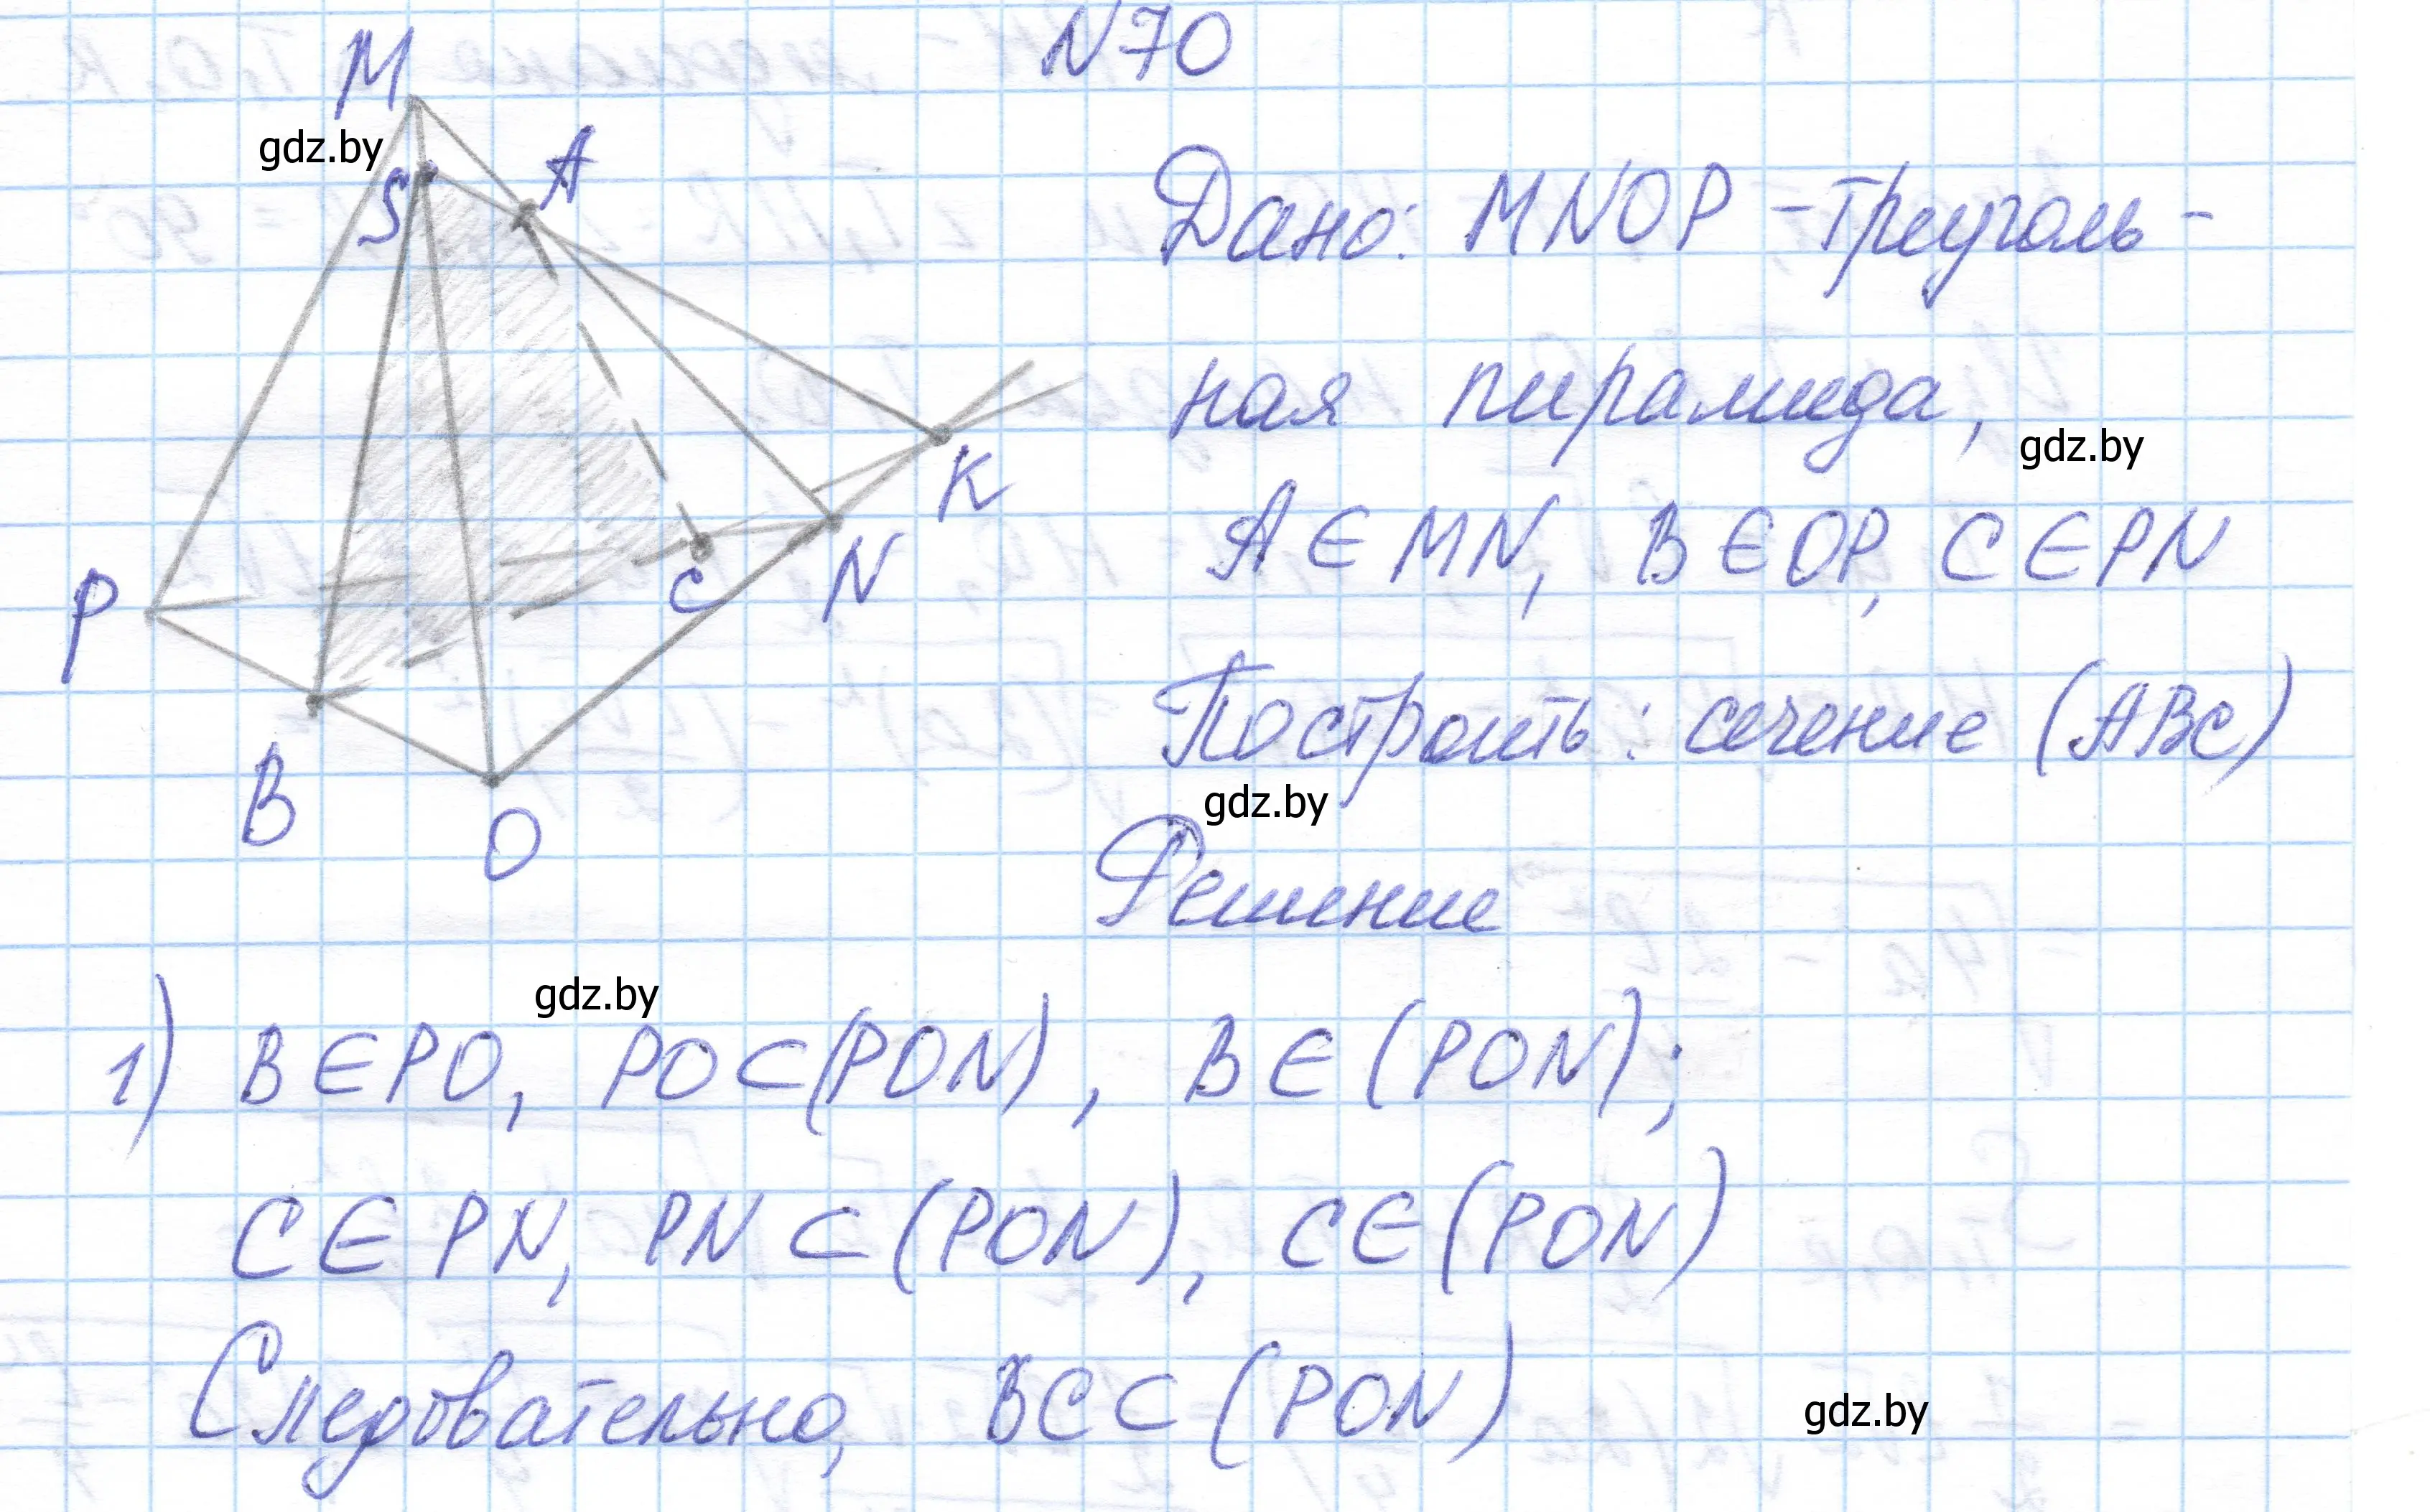 N70
M
gdz.by
S
A
Дано: MNOP - треуголь-
ная пирамида,
gdz.by
K
A ∈ MN, B ∈ OP, C ∈ PN
P
C
N
Построить: сечение (ABC)
gdz.by
B
O
Решение
gdz.by
1) B ∈ PO, PO ⊂ (PON), B ∈ (PON);
C ∈ PN, PN ⊂ (PON), C ∈ (PON)
Следовательно, BC ⊂ (PON)
gdz.by